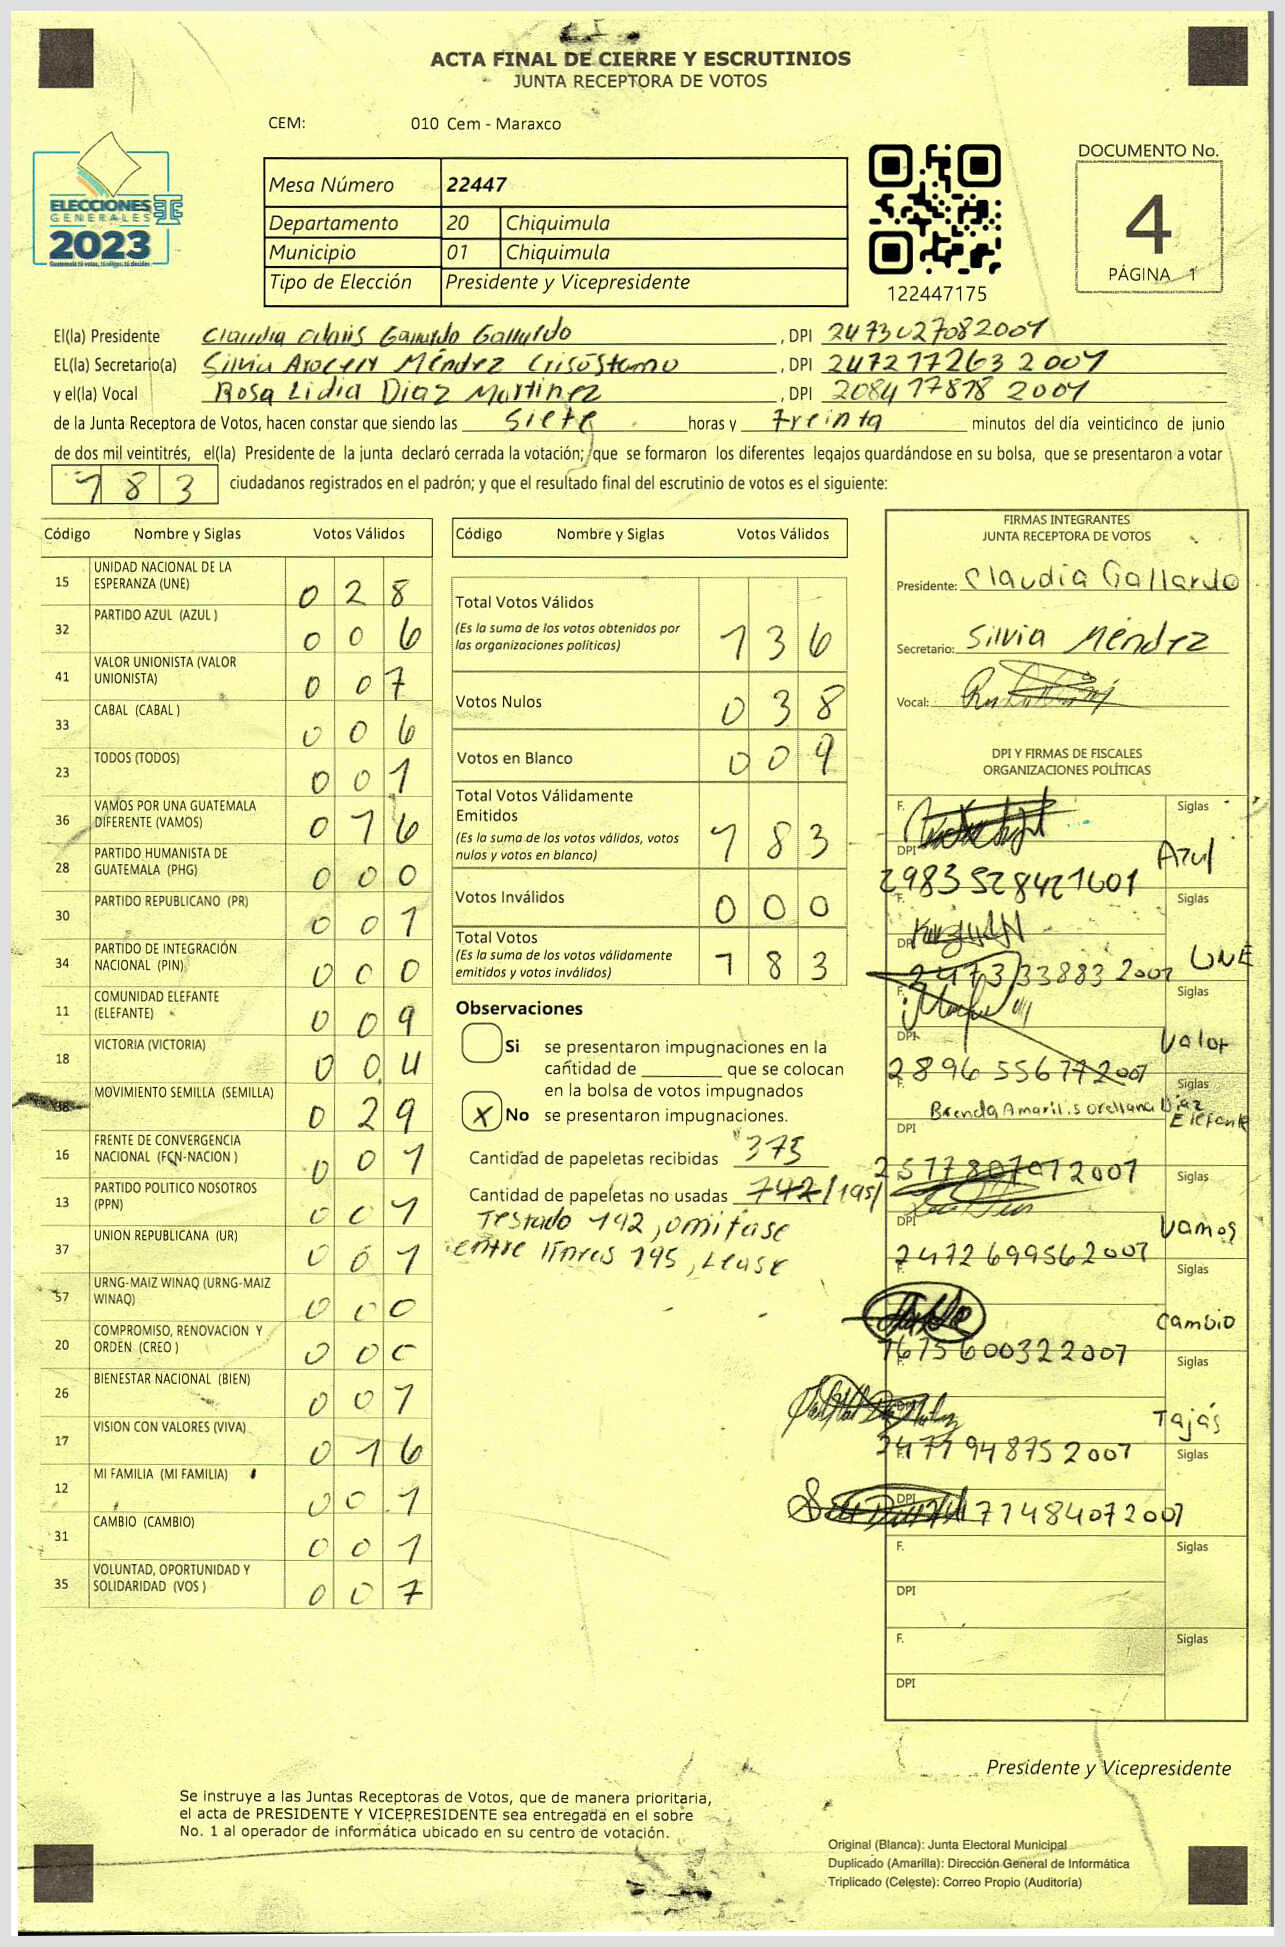 ACTA FINAL DE CIERRE Y ESCRUTINIOS
JUNTA RECEPTORA DE VOTOS
CEM: 010 Cem - Maraxco
ELECCIONES
GENERALES
2023
Mesa Número 22447
Departamento 20 Chiquimula
Municipio 01 Chiquimula
Tipo de Elección Presidente y Vicepresidente
122447175
DOCUMENTO No.
4
PÁGINA 1
El(la) Presidente Claudia Gallardo, DPI
EL(la) Secretario(a) Silvia Méndez Crisóstomo, DPI 247217263 2001
y el(la) Vocal Rosa Lidia Diaz Martinez, DPI 2084 17878 2001
de la Junta Receptora de Votos, hacen constar que siendo las siete horas y treinta minutos del día veinticinco de junio
de dos mil veintitrés, el(la) Presidente de la junta declaró cerrada la votación; que se formaron los diferentes legajos guardándose en su bolsa, que se presentaron a votar
183 ciudadanos registrados en el padrón; y que el resultado final del escrutinio de votos es el siguiente:
Código Nombre y Siglas Votos Válidos
15 UNIDAD NACIONAL DE LA ESPERANZA (UNE) 0 2 8
32 PARTIDO AZUL (AZUL ) 0 0 6
41 VALOR UNIONISTA (VALOR UNIONISTA) 0 0 7
33 CABAL (CABAL ) 0 0 6
23 TODOS (TODOS) 0 0 1
36 VAMOS POR UNA GUATEMALA DIFERENTE (VAMOS) 0 1 6
28 PARTIDO HUMANISTA DE GUATEMALA (PHG) 0 0 0
30 PARTIDO REPUBLICANO (PR) 0 0 1
34 PARTIDO DE INTEGRACIÓN NACIONAL (PIN) 0 0 0
11 COMUNIDAD ELEFANTE (ELEFANTE) 0 0 9
18 VICTORIA (VICTORIA) 0 0 4
38 MOVIMIENTO SEMILLA (SEMILLA) 0 2 9
16 FRENTE DE CONVERGENCIA NACIONAL (FCN-NACION ) 0 0 1
13 PARTIDO POLITICO NOSOTROS (PPN) 0 0 1
37 UNION REPUBLICANA (UR) 0 0 1
57 URNG-MAIZ WINAQ (URNG-MAIZ WINAQ) 0 0 0
20 COMPROMISO, RENOVACION Y ORDEN (CREO ) 0 0 0
26 BIENESTAR NACIONAL (BIEN) 0 0 1
17 VISION CON VALORES (VIVA) 0 1 6
12 MI FAMILIA (MI FAMILIA) 0 0 1
31 CAMBIO (CAMBIO) 0 0 1
35 VOLUNTAD, OPORTUNIDAD Y SOLIDARIDAD (VOS ) 0 0 7
Código Nombre y Siglas Votos Válidos
Total Votos Válidos 1 3 6
(Es la suma de los votos obtenidos por
las organizaciones políticas)
Votos Nulos 0 3 8
Votos en Blanco 0 0 9
Total Votos Válidamente
Emitidos 1 8 3
(Es la suma de los votos válidos, votos
nulos y votos en blanco)
Votos Inválidos 0 0 0
Total Votos 1 8 3
(Es la suma de los votos válidamente
emitidos y votos inválidos)
Observaciones
Si se presentaron impugnaciones en la
cantidad de ________ que se colocan
en la bolsa de votos impugnados
X No se presentaron impugnaciones.
Cantidad de papeletas recibidas 375
Cantidad de papeletas no usadas 142/195/
Testado 192, omitase
entre lineas 195, Lease
FIRMAS INTEGRANTES
JUNTA RECEPTORA DE VOTOS
Presidente: Claudia Gallardo
Secretario: Silvia Méndez
Vocal:
DPI Y FIRMAS DE FISCALES
ORGANIZACIONES POLÍTICAS
F. Siglas
DPI Azul
2983528421601
F. Siglas
DPI UNE
F. Siglas
DPI Valor
2896 556772007
F. Siglas
Brenda Amarilis Orellana Diaz Elefante
DPI
2577807072007
F. Siglas
DPI Vamos
2472699562007
F. Siglas
Cambio
1675600322007
F. Siglas
DPI Tajás
F. Siglas
DPI
F. Siglas
DPI
F. Siglas
DPI
Presidente y Vicepresidente
Se instruye a las Juntas Receptoras de Votos, que de manera prioritaria,
el acta de PRESIDENTE Y VICEPRESIDENTE sea entregada en el sobre
No. 1 al operador de informática ubicado en su centro de votación.
Original (Blanca): Junta Electoral Municipal
Duplicado (Amarilla): Dirección General de Informática
Triplicado (Celeste): Correo Propio (Auditoría)